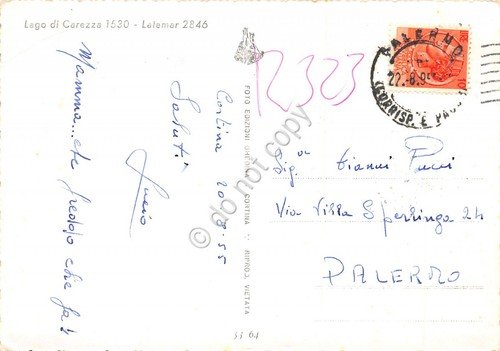 Lago di Carezza 1530 - Latemar 2846
Mamma... che freddo che fa!
Saluti
Cortina 20-8-55
12323
FOTO EDIZIONI GHEDINA - CORTINA - RIPROD. VIETATA
do not copy
PALERMO
22.-8.
CORRISP. E PACCHI
Sig. Gianni Pucci
Via Villa Sperlinga 24
PALERMO